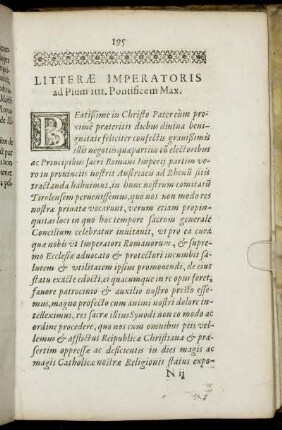 195
LITTERÆ IMPERATORIS
ad Pium IIII. Pontificem Max.
BEatissime in Christo Pater cùm pro-
ximè præteritis diebus diuina beni-
gnitate feliciter confectis grauissimis
illis negotijs quæ partim cū electoribus
ac Principibus sacri Romani Imperij partim ve-
ro in prouincijs nostris Austriacis ad Rhenū sitis
tractanda habuimus, in hunc nostrum comitatū
Tirolensem peruenissemus, quo nos non modo res
nostræ priuatæ vocarunt, verum etiam propin-
quitas loci in quo hoc tempore sacrum generale
Concilium celebratur inuitauit, vt pro ea cura
quæ nobis vt Imperatori Romanorum, & supre-
mo Ecclesiæ aduocato & protectori incumbit sa-
lutem & vtilitatem ipsius promouendi, de eius
statu exactè docti, ei quacumque in re opus foret,
fauore patrocinio & auxilio nostro præsto esse-
mus, magno profecto cum animi nostri dolore in-
telleximus, res sacræ illius Synodi non eo modo ac
ordine procedere, quo nos cum omnibus pijs vel-
lemus & afflictus Reipublicæ Christianæ & præ-
sertim oppressæ ac deficientis in dies magis ac
magis Catholicæ nostræ Religionis status expo-
N ij